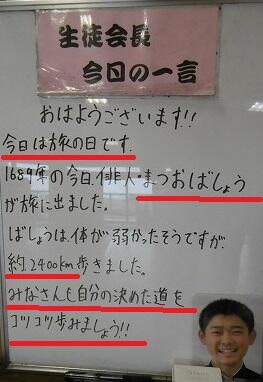 生徒会長
今日の一言
おはようございます!!
今日は旅の日です.
1689年の今日.俳人・まつおばしょう
が旅に出ました。
ばしょうは.体が弱かったそうですが.
約.2400km歩きました。
みなさんも自分の決めた道を
コツコツ歩みましょう!!